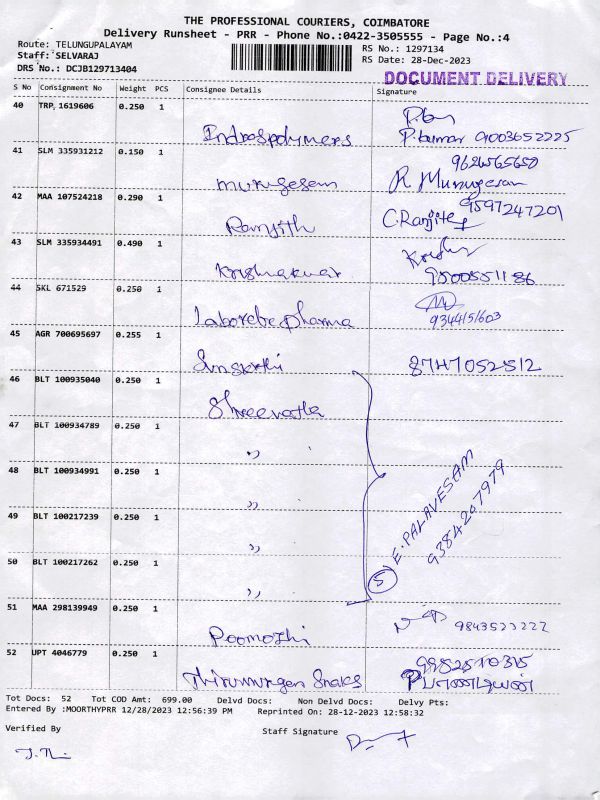 THE PROFESSIONAL COURIERS, COIMBATORE
Delivery Runsheet - PRR - Phone No.:0422-3505555 - Page No.:4
Route: TELUNGUPALAYAM
Staff: SELVARAJ
DRS No.: DCJB129713404
RS No.: 1297134
RS Date: 28-Dec-2023
DOCUMENT DELIVERY
S No Consignment No Weight PCS Consignee Details Signature
40 TRP 1619606 0.250 1
Indrospolymers P.kumar 9003652225
41 SLM 335931212 0.150 1
murugesan R Murugesan
42 MAA 107524218 0.290 1 9597247201
Ranjith C.Ranjith
43 SLM 335934491 0.490 1
Krishnakumar 9500551186
44 SKL 671529 0.250 1
pharma 9344151603
45 AGR 700695697 0.255 1
8747052512
46 BLT 100935040 0.250 1
47 BLT 100934789 0.250 1
,,
48 BLT 100934991 0.250 1
,,
49 BLT 100217239 0.250 1
,,
50 BLT 100217262 0.250 1
,,
5 E.PALAVESAM
9384207979
51 MAA 298139949 0.250 1
Poomozhi 9843523222
52 UPT 4046779 0.250 1
Thirumurgan Snaks
Tot Docs: 52 Tot COD Amt: 699.00 Delvd Docs: Non Delvd Docs: Delvy Pts:
Entered By :MOORTHYPRR 12/28/2023 12:56:39 PM Reprinted On: 28-12-2023 12:58:32
Verified By
Staff Signature